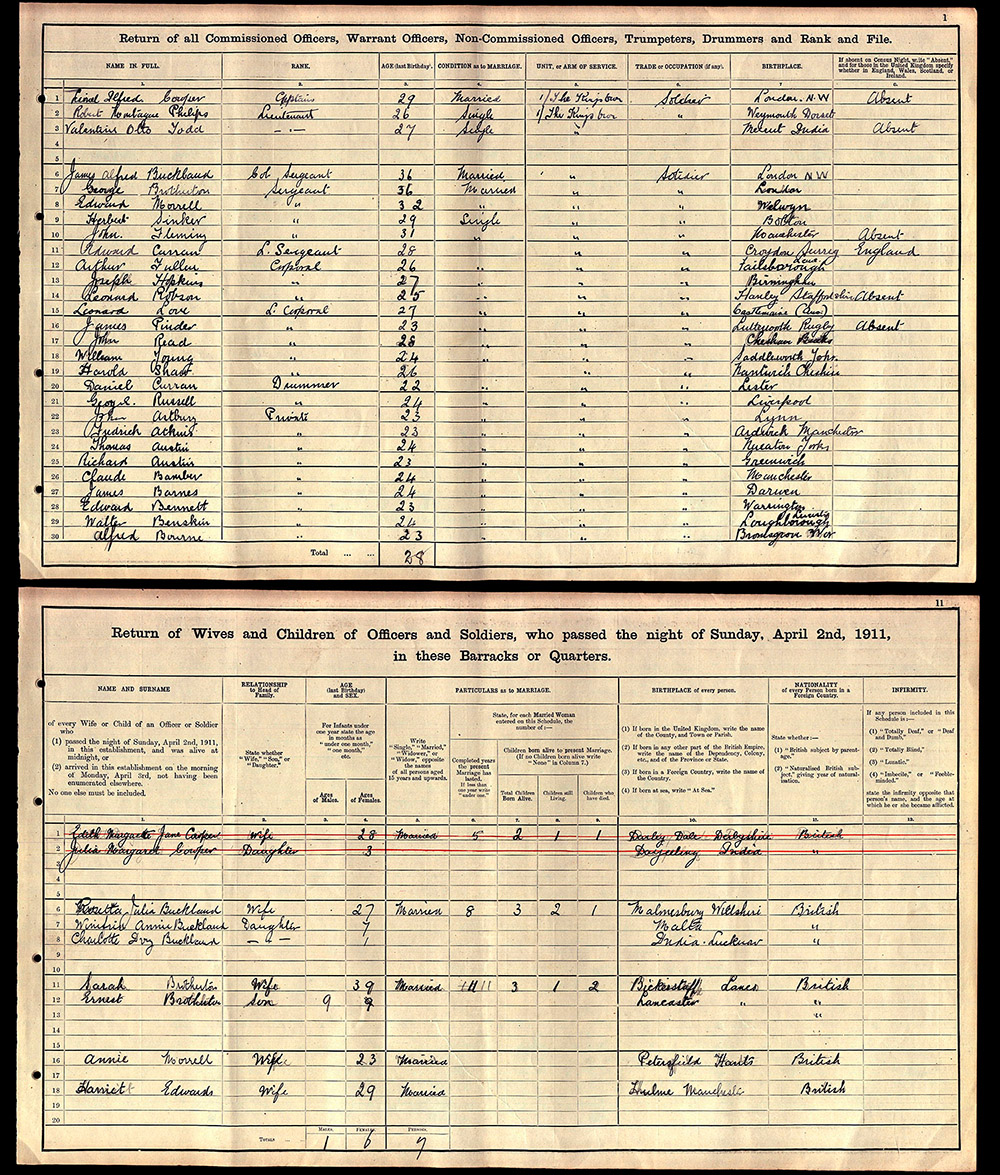 1
Return of all Commissioned Officers, Warrant Officers, Non-Commissioned Officers, Trumpeters, Drummers and Rank and File.
NAME IN FULL. RANK. AGE (last Birthday). CONDITION as to MARRIAGE. UNIT, OR ARM OF SERVICE. TRADE or OCCUPATION (if any). BIRTHPLACE. If absent on Census Night, write "Absent," and for those in the United Kingdom specify whether in England, Wales, Scotland, or Ireland.
1. 2. 3. 4. 5. 6. 7. 8.
1 Lionel Alfred Cowper Captain 29 Married 1/ The Kings Own Soldier London. N.W Absent
2 Robert Montague Philips Lieutenant 26 Single 1/ The Kings Own " Weymouth Dorset
3 Valentine Otto Todd — " — 27 Single " " India Absent
4
5
6 James Alfred Buckland Col Sergeant 36 Married " Soldier London NW
7 George Brotherton Sergeant 36 Married " " London
8 Edward Morrell " 32 " " " Welwyn
9 Herbert Sinker " 29 Single " " Bolton
10 John. Fleming " 31 " " " Manchester Absent
11 Edward Curran L. Sergeant 28 " " " Croydon Surrey England
12 Arthur Fuller Corporal 26 " " "
13 Joseph Hopkins " 27 " " " Birmingham
14 Leonard Robson " 25 " " " Hanley Staffordshire Absent
15 Leonard Love L. Corporal 27 " " " Castlemaine (Aus.)
16 James Pinder " 23 " " " Lutterworth Rugby Absent
17 John Read " 28 " " " Chesham Bucks
18 William Young " 24 " " " Saddleworth Yorks.
19 Harold Shaw " 26 " " " Nantwich Cheshire
20 Daniel Curran Drummer 22 " " " Lester
21 George. Russell " 24 " " " Liverpool
22 John Artbury Private 23 " " " Lynn
23 Fredrick Atkins " 23 " " " Ardwick Manchester
24 Thomas Austin " 24 " " " Yorks
25 Richard Austin " 23 " " " Greenwich
26 Claude Bamber " 24 " " " Manchester
27 James Barnes " 24 " " " Darwen
28 Edward Bennett " 23 " " " Warrington
29 Walter Benskin " 24 " " " Loughborough
30 Alfred Bourne " 23 " " " Bromsgrove Wor
Total ... ... 28
11
Return of Wives and Children of Officers and Soldiers, who passed the night of Sunday, April 2nd, 1911,
in these Barracks or Quarters.
NAME AND SURNAME
of every Wife or Child of an Officer or Soldier who
(1) passed the night of Sunday, April 2nd, 1911, in this establishment, and was alive at midnight, or
(2) arrived in this establishment on the morning of Monday, April 3rd, not having been enumerated elsewhere.
No one else must be included.
RELATIONSHIP to Head of Family.
State whether "Wife," "Son," or "Daughter."
AGE (last Birthday) and SEX.
For Infants under one year state the age in months as "under one month," "one month," etc.
Ages of Males. Ages of Females.
PARTICULARS as to MARRIAGE.
Write "Single," "Married," "Widower," or "Widow," opposite the names of all persons aged 15 years and upwards.
State, for each Married Woman entered on this Schedule, the number of:—
Completed years the present Marriage has lasted. If less than one year write "under one."
Children born alive to present Marriage. (If no Children born alive write "None" in Column 7.)
Total Children Born Alive. Children still Living. Children who have died.
BIRTHPLACE of every person.
(1) If born in the United Kingdom, write the name of the County, and Town or Parish.
(2) If born in any other part of the British Empire, write the name of the Dependency, Colony, etc., and of the Province or State.
(3) If born in a Foreign Country, write the name of the Country.
(4) If born at sea, write "At Sea."
NATIONALITY of every Person born in a Foreign Country.
State whether:—
(1) "British subject by parentage."
(2) "Naturalised British subject," giving year of naturalisation.
INFIRMITY.
If any person included in this Schedule is:—
(1) "Totally Deaf," or "Deaf and Dumb,"
(2) "Totally Blind,"
(3) "Lunatic,"
(4) "Imbecile," or "Feeble-minded,"
state the infirmity opposite that person's name, and the age at which he or she became afflicted.
1. 2. 3. 4. 5. 6. 7. 8. 9. 10. 11. 12.
1 Edith Margarette Jane Cowper Wife 28 Married 5 2 1 1 Darley Dale Derbyshire British
2 Julia Margaret Cowper Daughter 3 Darjeeling India "
3
4
5
6 Rosetta Julia Buckland Wife 27 Married 8 3 2 1 Malmesbury Wiltshire British
7 Winifride Annie Buckland Daughter 7 Malta "
8 Charlotte Ivy Buckland — " — 1 India. Lucknow "
9
10
11 Sarah Brotherton Wife 39 Married 11 3 1 2 Bickerstaffe Lancs British
12 Ernest Brotherton Son 9 9 Lancaster " "
13 "
14
15
16 Annie Morrell Wife 23 Married Petersfield Hants British
17
18 Harriett Edwards Wife 29 Married Hulme Manchester British
19
20
Totals MALES. 1 FEMALES. 6 PERSONS. 7